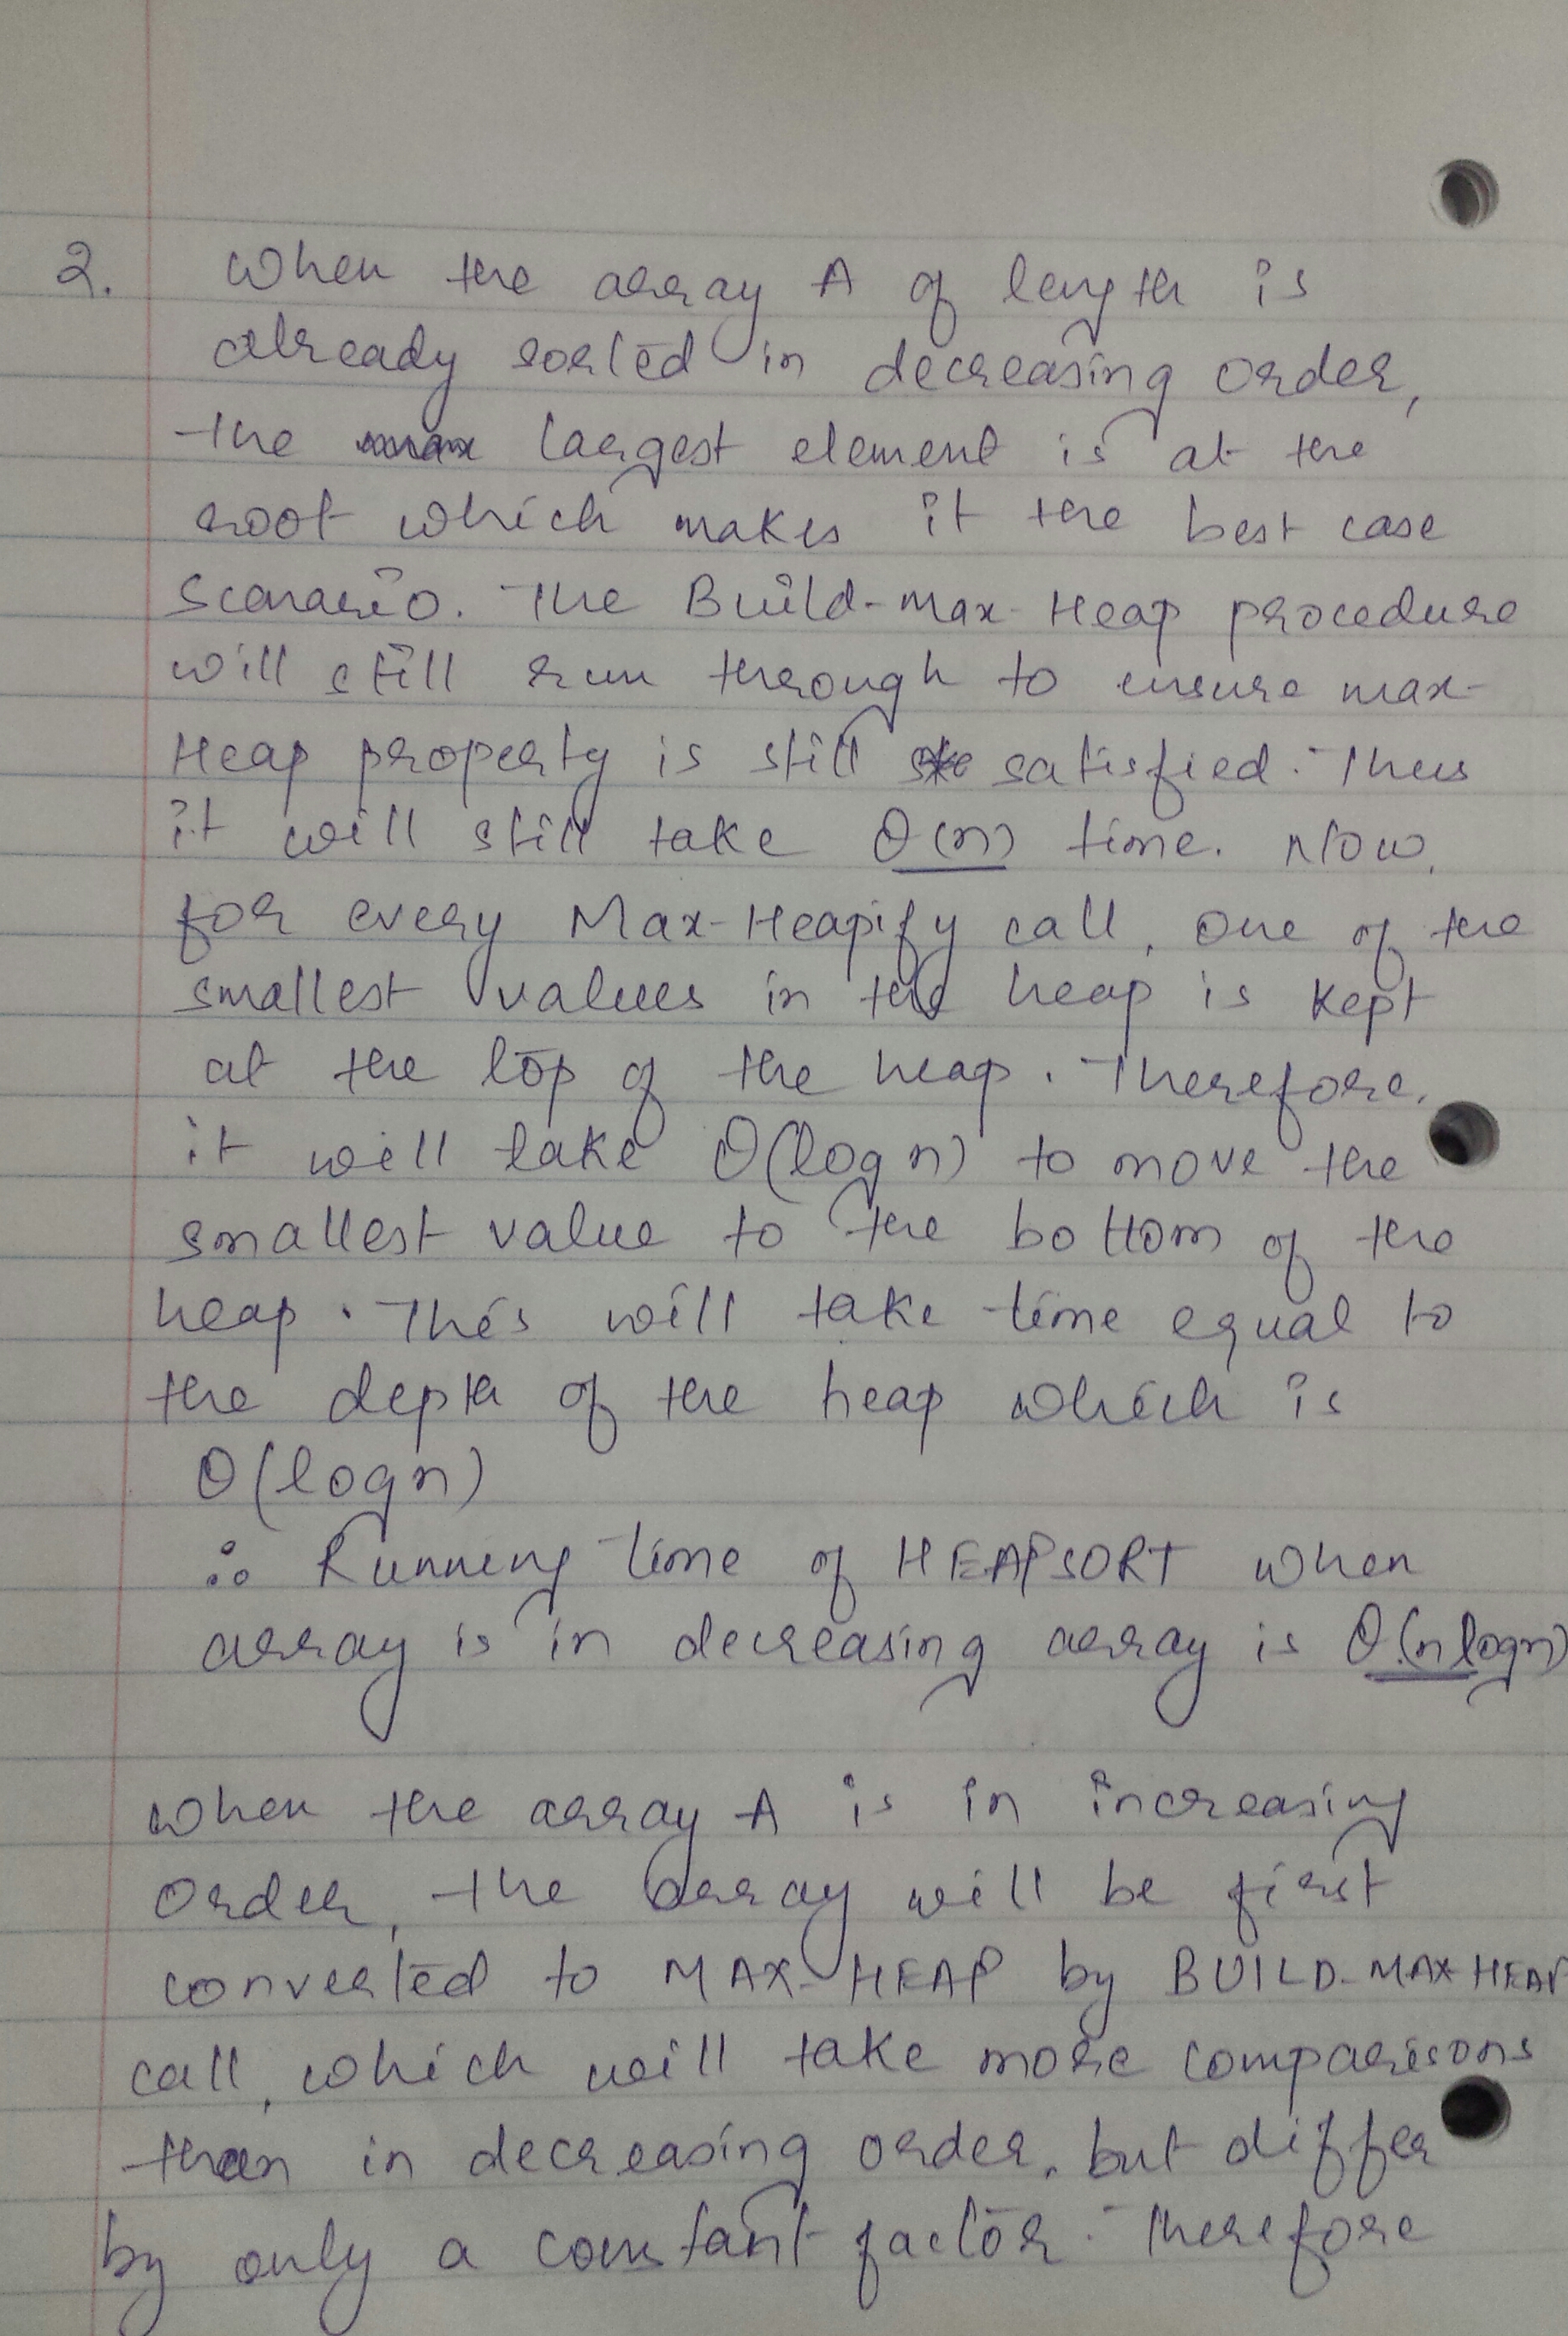 2. When the array A of length is
already sorted in decreasing order,
the largest element is at the
root which makes it the best case
scenario. The Build-Max-Heap procedure
will still run through to ensure max-
Heap property is still satisfied. Thus
it will still take O(n) time. Now,
for every Max-Heapify call, one of the
smallest values in the heap is kept
at the top of the heap. Therefore,
it will take O(log n) to move the
smallest value to the bottom of the
heap. This will take time equal to
the depth of the heap which is
O(log n)
∴ Running time of HEAPSORT when
array is in decreasing array is O(n logn)
When the array A is in increasing
order, the array will be first
converted to MAX-HEAP by BUILD-MAX HEAP
call, which will take more comparisons
than in decreasing order, but differ
by only a constant factor. Therefore